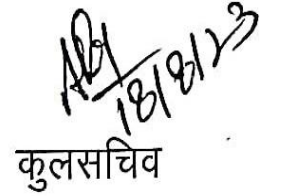 18/8/23
कुलसचिव